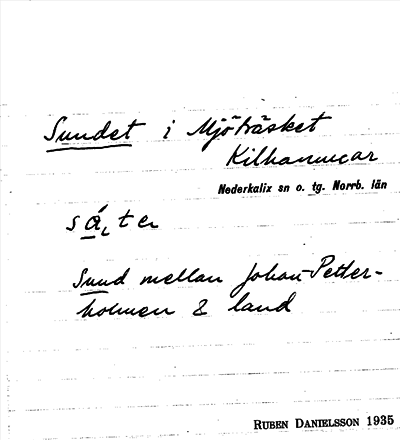 Sundet i Mjöträsket
Kilhanncar
Nederkalix sn o. tg. Norrb. län
sá̱ʟter
Sund mellan Johan-Petter-
holmen & land
RUBEN DANIELSSON 1935